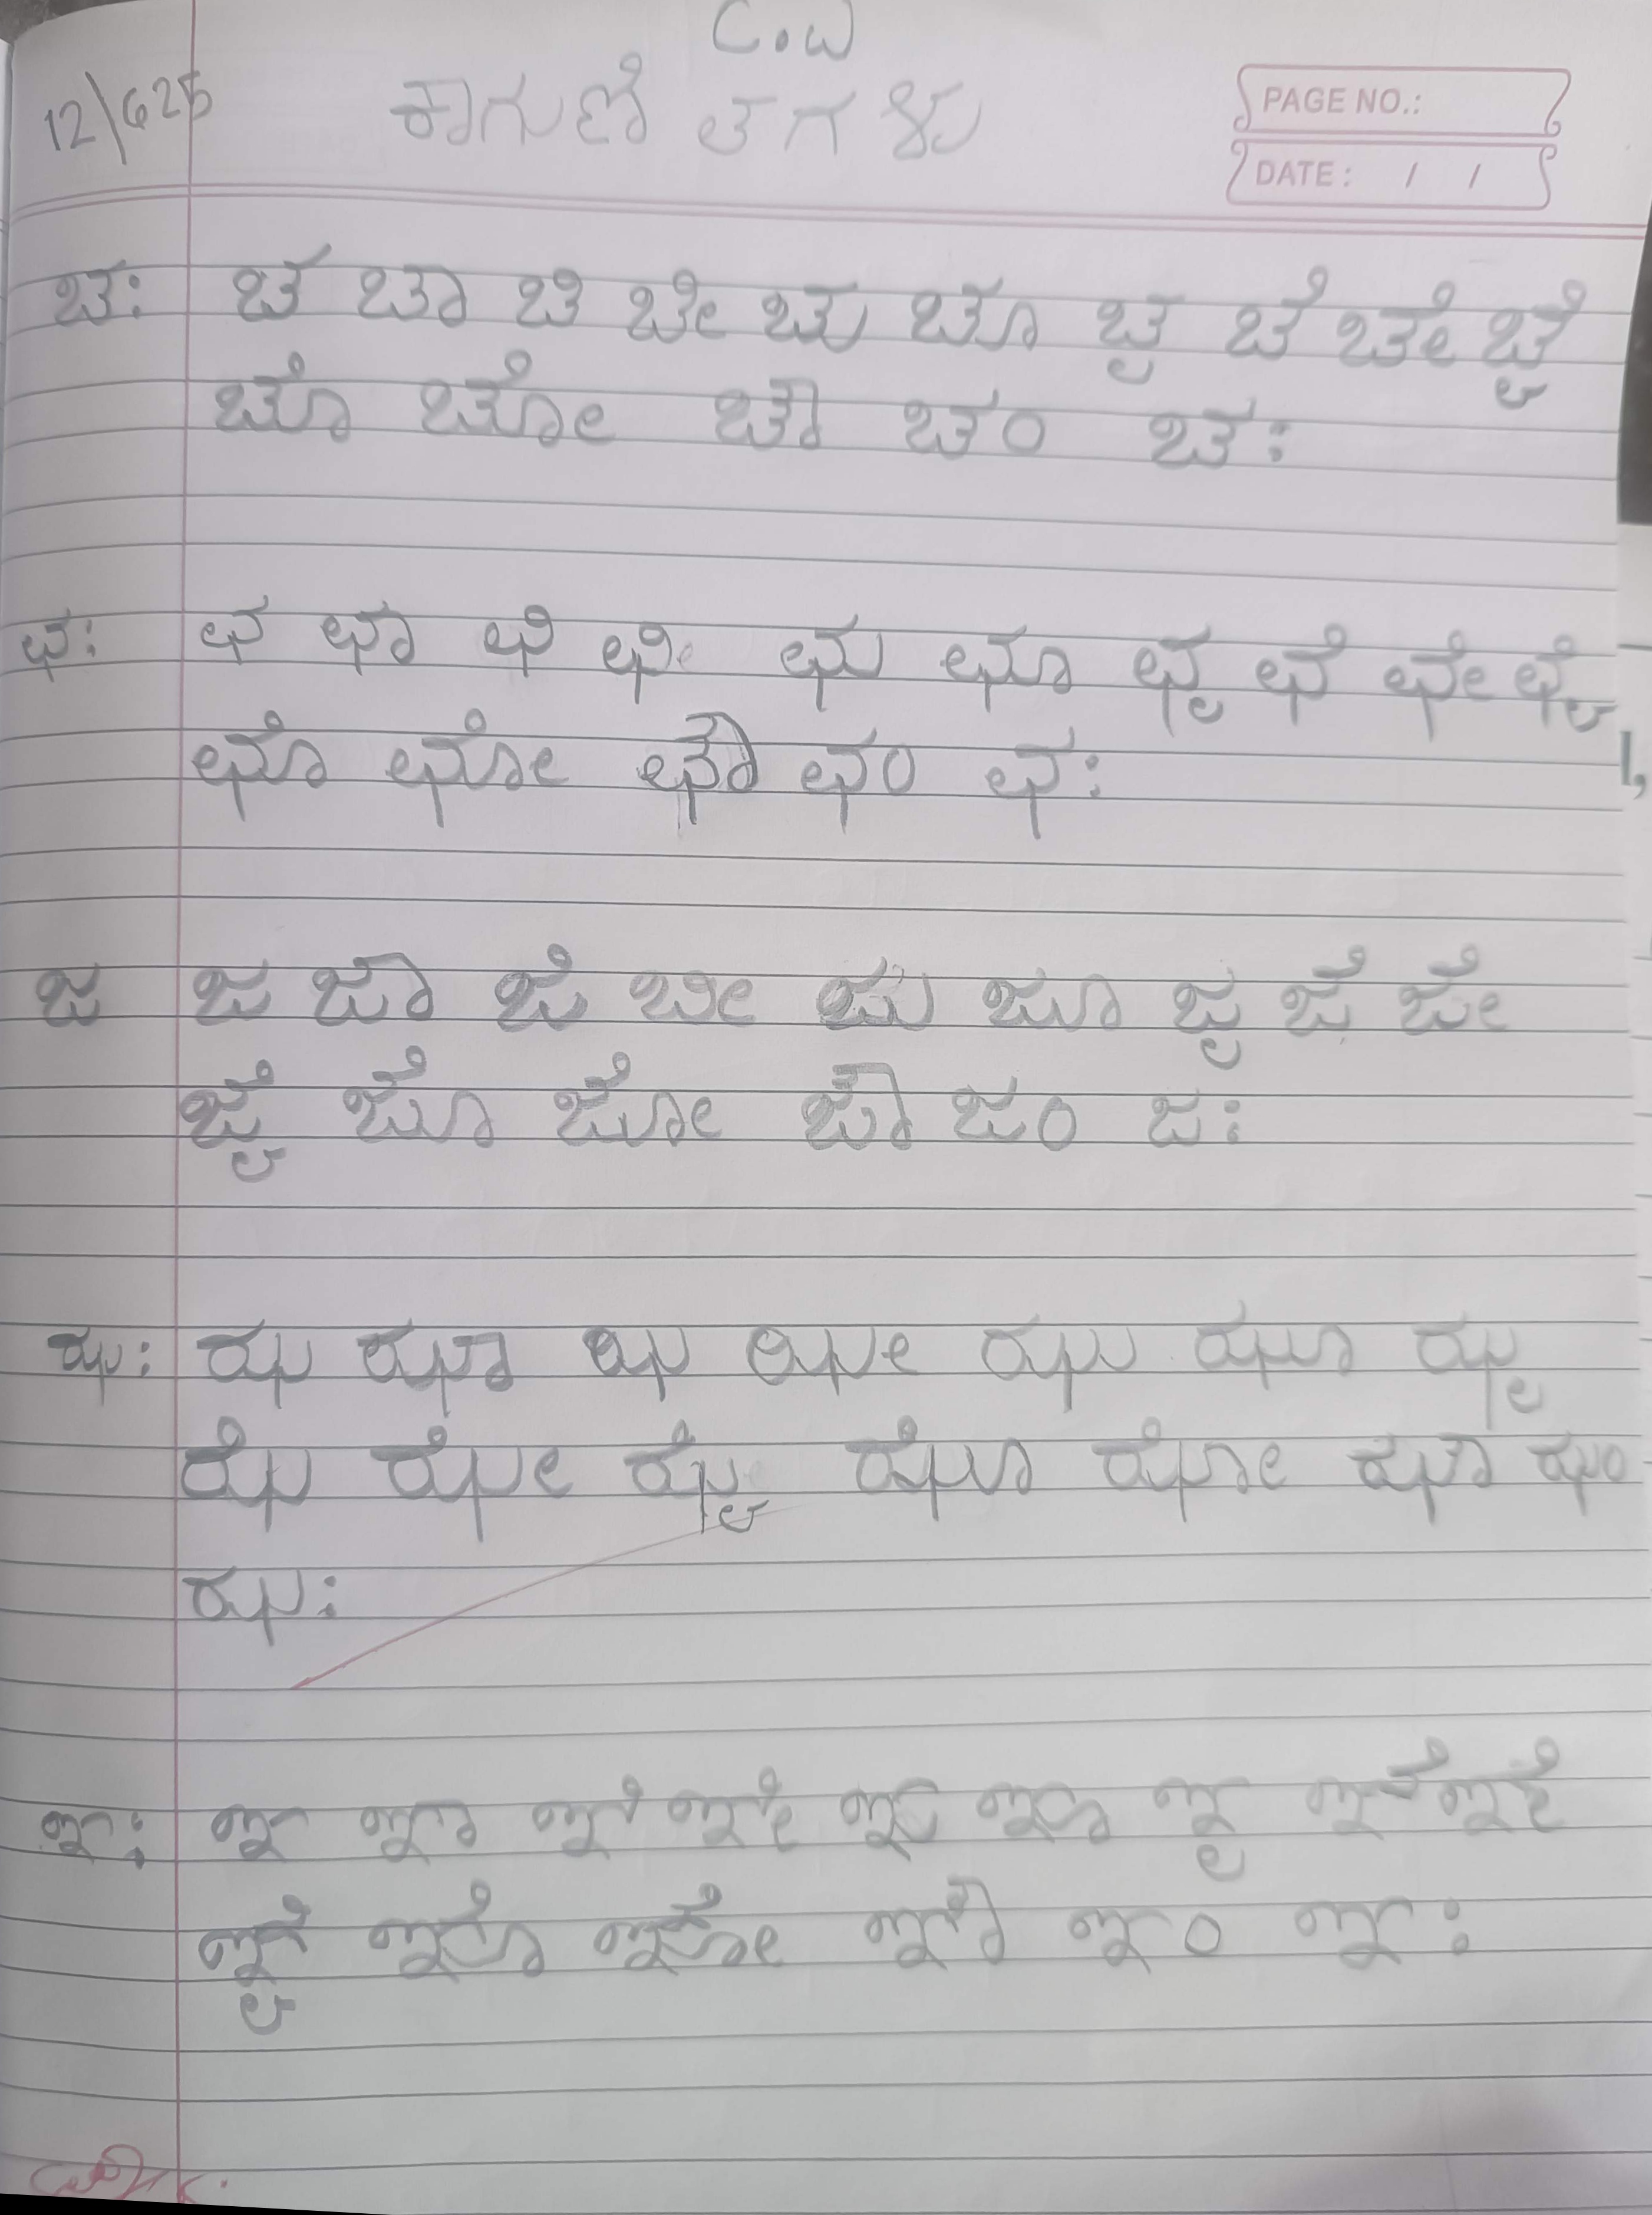 C.W
12\625
ಕಾಗುಣಿತಗಳು
PAGE NO.:
DATE: / /
ಚ: ಚ ಚಾ ಚಿ ಚೀ ಚು ಚೂ ಚೃ ಚೆ ಚೇ ಚೈ
ಚೊ ಚೋ ಚೌ ಚಂ ಚಃ
ಛ: ಛ ಛಾ ಛಿ ಛೀ ಛು ಛೂ ಛೃ ಛೆ ಛೇ ಛೈ
ಛೊ ಛೋ ಛೌ ಛಂ ಛಃ
ಜ ಜ ಜಾ ಜಿ ಜೀ ಜು ಜೂ ಜೃ ಜೆ ಜೇ
ಜೈ ಜೊ ಜೋ ಜೌ ಜಂ ಜಃ
ಝ: ಝ ಝಾ ಝಿ ಝೀ ಝು ಝೂ ಝೃ
ಝೆ ಝೇ ಝೈ ಝೊ ಝೋ ಝೌ ಝಂ
ಝಃ
ಞ: ಞ ಞಾ ಞಿ ಞೀ ಞು ಞೂ ಞೃ ಞೆ ಞೇ
ಞೈ ಞೊ ಞೋ ಞೌ ಞಂ ಞಃ